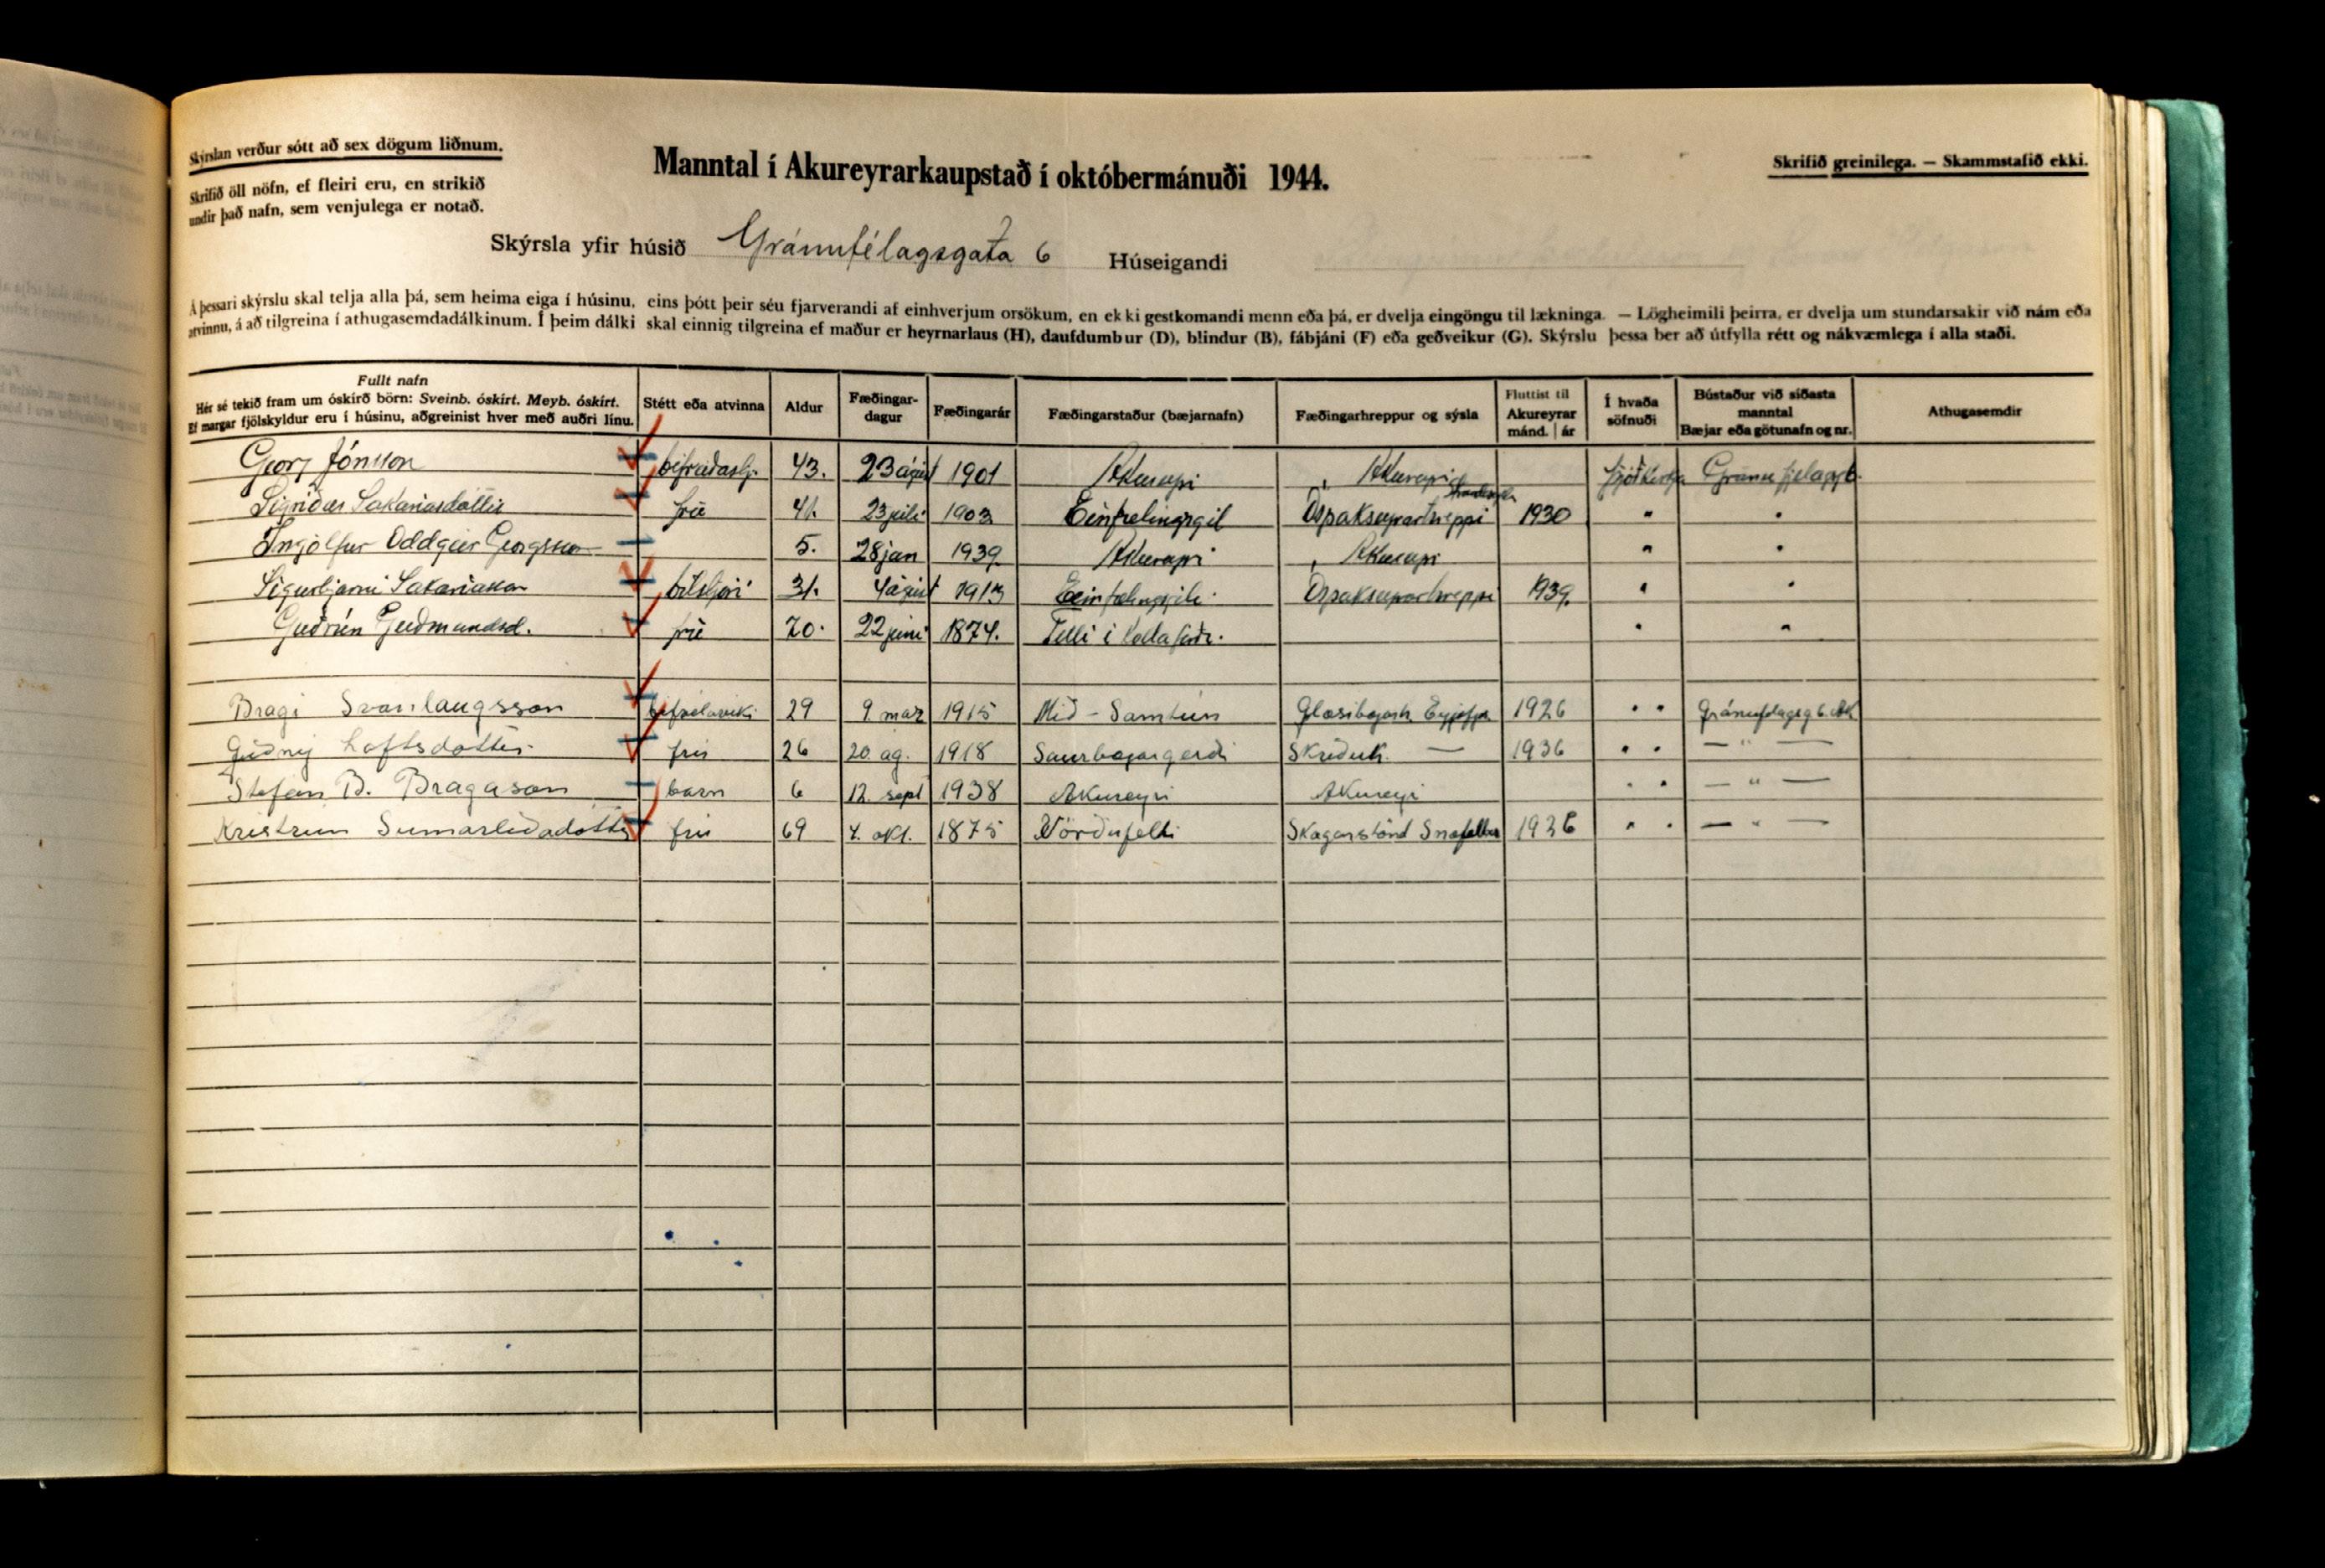 Skýrslan verður sótt að sex dögum liðnum.
Skrifið öll nöfn, ef fleiri eru, en strikið
undir það nafn, sem venjulega er notað.
Manntal í Akureyrarkaupstað í októbermánuði 1944.
Skrifið greinilega. — Skammstafið ekki.
Skýrsla yfir húsið Gránufélagsgata 6 Húseigandi
Á þessari skýrslu skal telja alla þá, sem heima eiga í húsinu, eins þótt þeir séu fjarverandi af einhverjum orsökum, en ekki gestkomandi menn eða þá, er dvelja eingöngu til lækninga. — Lögheimili þeirra, er dvelja um stundarsakir við nám eða
atvinnu, á að tilgreina í athugasemdadálkinum. Í þeim dálki skal einnig tilgreina ef maður er heyrnarlaus (H), daufdumbur (D), blindur (B), fábjáni (F) eða geðveikur (G). Skýrslu þessa ber að útfylla rétt og nákvæmlega í alla staði.
Fullt nafn
Hér sé tekið fram um óskírð börn: Sveinb. óskírt. Meyb. óskírt.
Ef margar fjölskyldur eru í húsinu, aðgreinist hver með auðri línu.
Stétt eða atvinna
Aldur
Fæðingar-
dagur
Fæðingarár
Fæðingarstaður (bæjarnafn)
Fæðingarhreppur og sýsla
Fluttist til
Akureyrar
mánd. | ár
Í hvaða
söfnuði
Bústaður við síðasta
manntal
Bæjar eða götunafn og nr.
Athugasemdir
Georg Jónsson 43. 23 ágúst 1901 Akureyri " Akureyri Þjóðkirkja
Sigríður Sakaríasdóttir frú 41. 23 júlí 1903 Óspakseyrarhreppi 1930 " "
Ingólfur Oddgeir Georgsson 5. 28 jan 1939 Akureyri " Akureyri " "
Sigurbjarni Sakaríasson bílstjóri 31. 4 ágúst 1913 Óspakseyrarhreppi 1939. " "
Guðrún Guðmundsd. frú 70. 22 júní 1874. Felli í Kollafirði. " "
Bragi Svanlaugsson 29 9. mar 1915 Mið-Samtún Glæsibæjarh. 1926 " " Gránufélagsg 6. Ak
Guðný Loftsdóttir frú 26 20. ág. 1918 Saurbæjargerði Skriðuh. — 1936 " " — " —
Stefán B. Bragason barn 6 12. sept 1938 Akureyri Akureyri " " — " —
Kristrún Sumarliðadóttir frú 69 4. okt. 1875 Vörðufelli Skógarströnd 1926 " " — " —